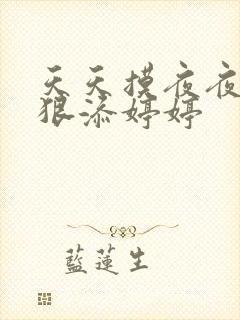 天天摸夜夜
狠添婷婷
藍蓮生